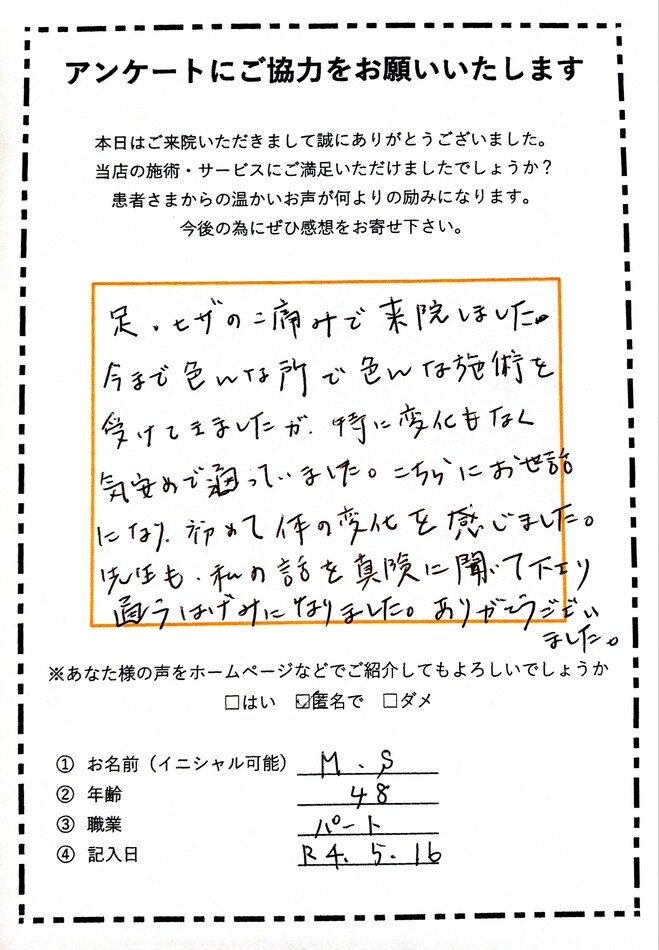 アンケートにご協力をお願いいたします
本日はご来院いただきまして誠にありがとうございました。
当店の施術・サービスにご満足いただけましたでしょうか？
患者さまからの温かいお声が何よりの励みになります。
今後の為にぜひ感想をお寄せ下さい。
足・ヒザの痛みで来院しました。
今まで色んな所で色んな施術を
受けてきましたが、特に変化もなく
気安めで通っていました。こちらにお世話
になり、初めて体の変化を感じました。
先生も、私の話を真険に聞いて下さり
通うはげみになりました。ありがとうござい
ました。
※あなた様の声をホームページなどでご紹介してもよろしいでしょうか
□はい ☑匿名で □ダメ
① お名前（イニシャル可能） M.S
② 年齢 48
③ 職業 パート
④ 記入日 R4.5.16